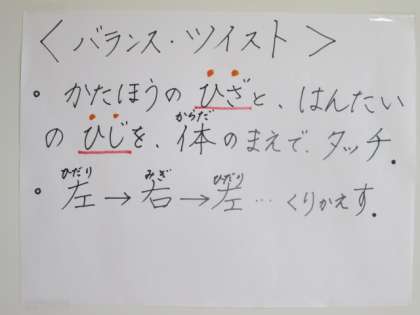 ＜バランス・ツイスト＞
。かたほうの ひざと、はんたい
の ひじを、体のまえで、タッチ.
からだ
。左→右→左… くりかえす.
ひだり みぎ ひだり